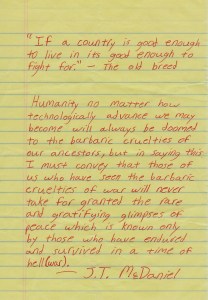 "If a country is good enough
to live in its good enough to
fight for." – The old breed
Humanity no matter how
technologically advance we may
become will always be doomed
to the barbaric cruelties of
our ancestors, but in saying this
I must convey that those of
us who have seen the barbaric
cruelties of war will never
take for granted the rare
and gratifying glimpses of
peace which is known only
by those who have endured
and survived in a time of
hell(war).
— J.T. McDaniel